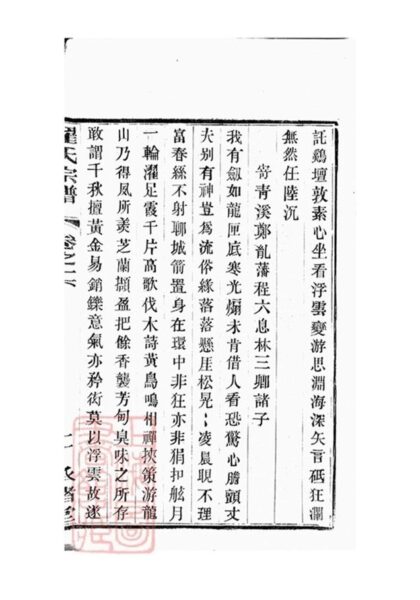 託鷄壇敦素心坐看浮雲變游思淵海深矢言砥狂瀾
無然任陸沉
寄青溪鄭亂藩程六息林三卿諸子
我有劍如龍匣底寒光爛未肯借人看恐驚心膽顫丈
夫别有神豈爲流俗緣落落懸崖松晃晃凌晨睍不理
富春絲不射聊城箭置身在環中非狂亦非狷扣舷月
一輪濯足霞千片高歌伐木詩黃鳥鳴相禪挾策游龍
山乃得鳳所羨芝蘭擷盈把餘香襲芳甸臭味之所存
敢謂千秋擅黃金易銷鑠意氣亦矜衒莫以浮雲故迷
羅氏宗譜